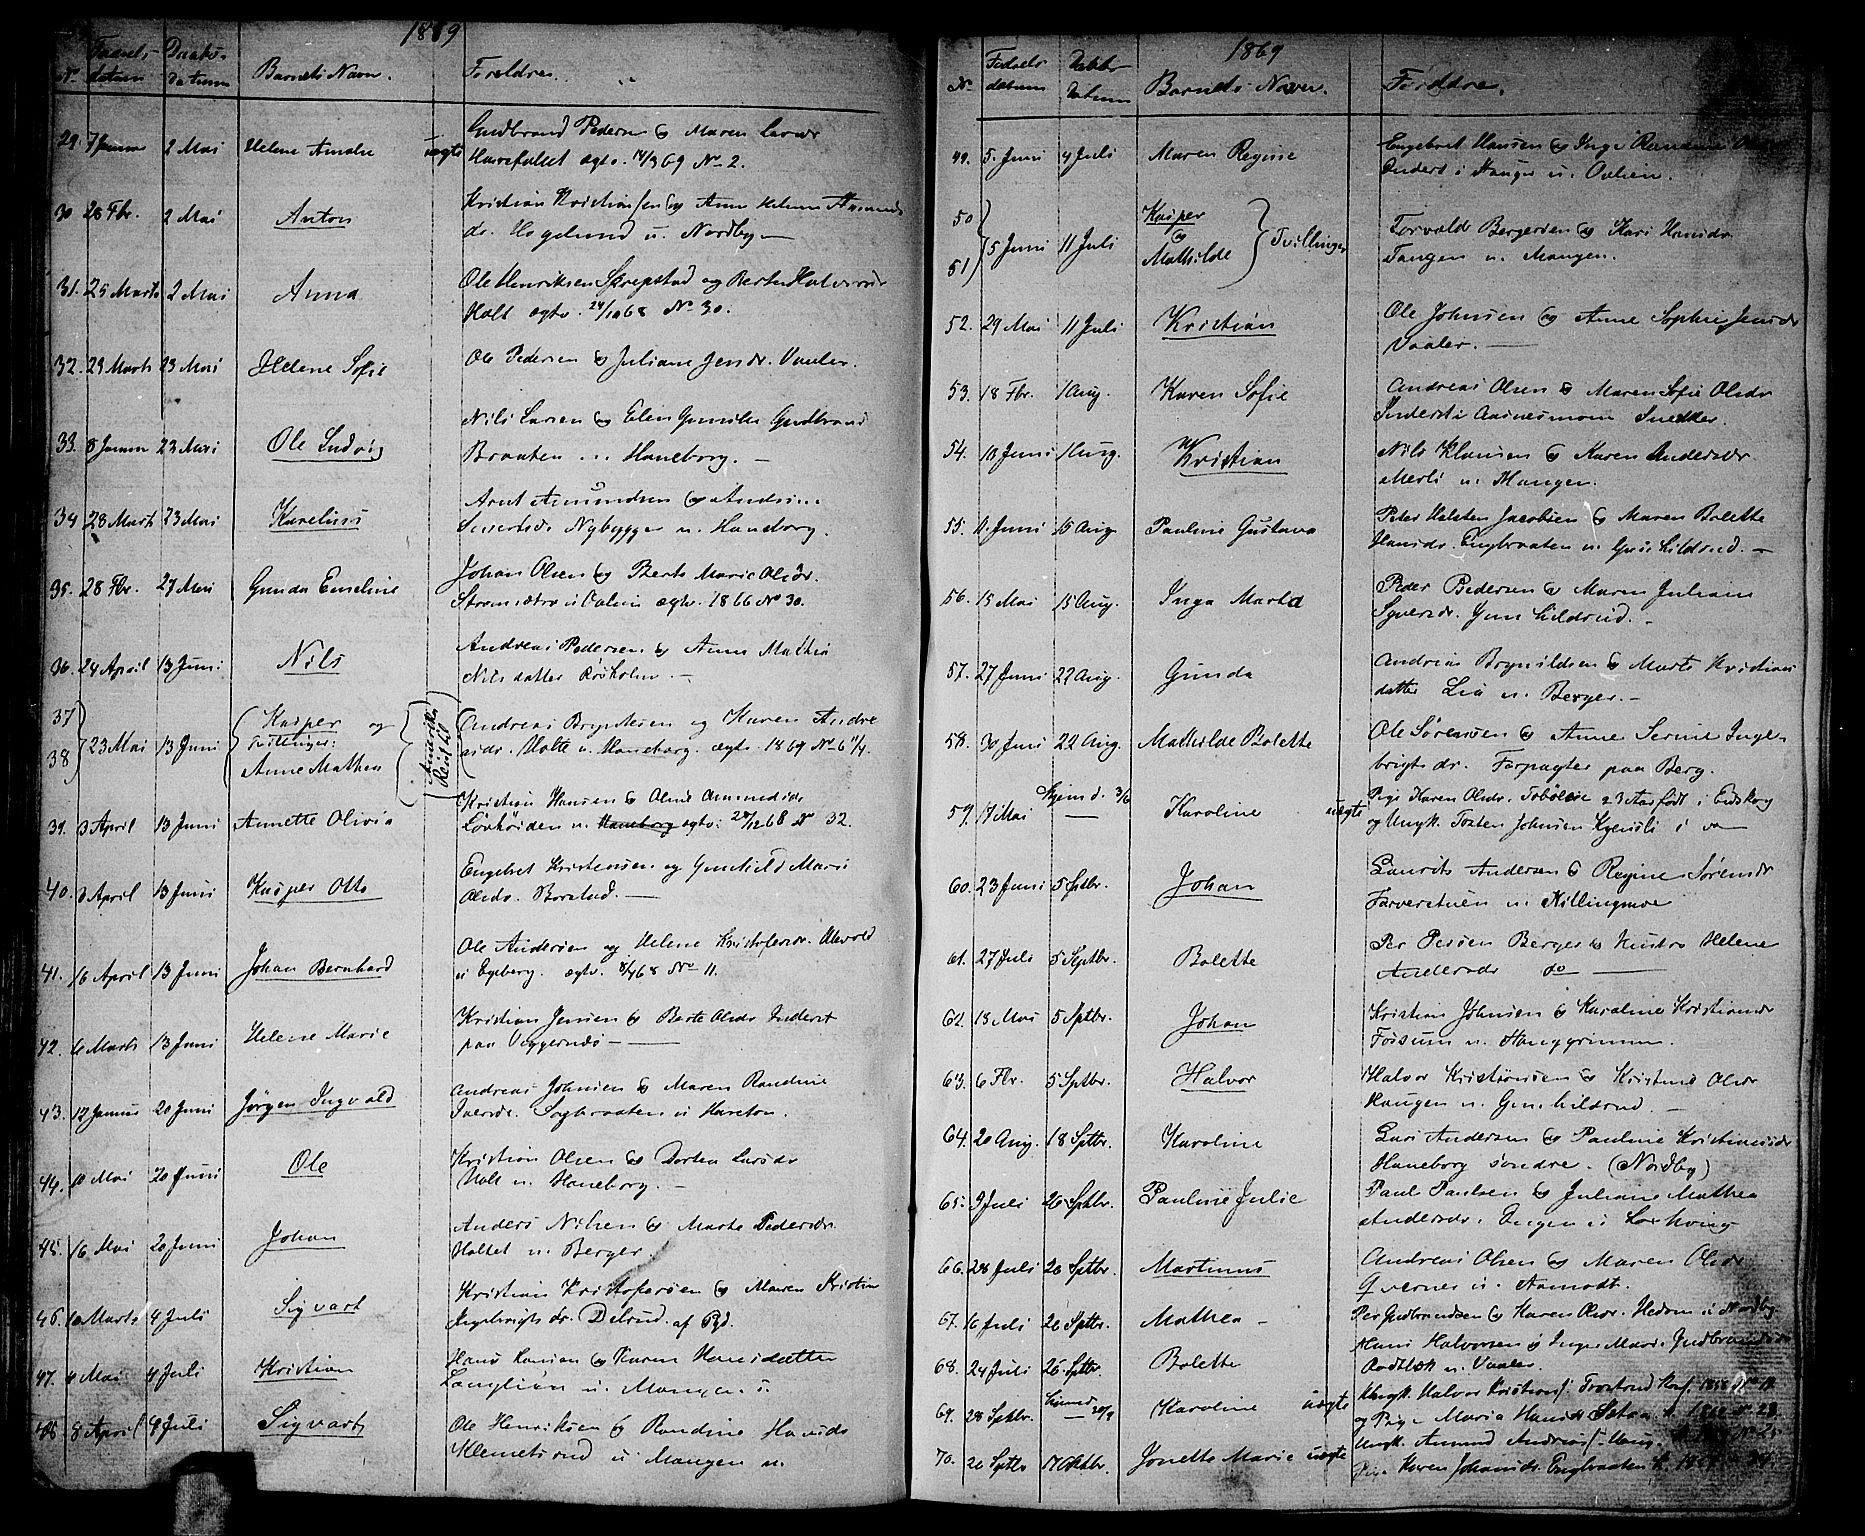 1869
Nr. Fødsels- datum Daabs- datum Barnets Navn. Foreldre.
29. 7 Januar 2 Mai Helene Amalie uægte Gudbrand Pedersen & Maren Larsdr
Harefallet ægtv. 14/3 69 No 2.
30 28 Fbr. 2 Mai Anton Kristian Kristiansen & Anne Helene Amunds
dr. Hogelund u. Nordby —
31. 25 Marts 2 Mai Anna Ole Henriksen Skrepstad og Berte Halvorsdr
Holt ægtv. 24/10 68 No 30.
32. 29 Marts 23 Mai Helene Sofie Ole Pedersen & Juliane Jensdr. Vaaler.
33. 8 Januar 23 Mai Ole Ludvig Nils Larsen & Elen Gunilla Gudbrand
Braaten Haneborg. —
34 28 Marts 23 Mai Karelius Arnt Amundsen & Andrine
Sivertsdr Nybygger u. Haneborg.
35. 28 Fbr. 27 Mai Gunda Emeline Johan Olsen & Berte Marie Olsdr.
Strømsætre u. ægtv. 1866 No 30.
36. 24 April 13 Juni Nils Andreas Pedersen & Anne Mathea
Nilsdatter Rørholm. —
37 38 23 Mai 13 Juni Kasper og
Tvillinger:
Anne Mathea Amerika Reist til Andreas Bryntesen og Karen Andre
asdr. Holte u. Haneborg. ægtv. 1869 No 6 11/4.
39. 3 April 13 Juni Annette Olivia Kristian Hansen & Oline Amundsdr
Lørhøiden u. Haneborg ægtv. 28/12 68 No 32.
40. 3 April 13 Juni Kasper Otto Engebret Kristensen og Gunhild Marie
Olsdr. Borstad. —
41. 16 April 13 Juni Johan Bernhard Ole Andersen og Helene Kristofersdr. Ulevold
u Egeberg. ægtv. 8/4 68 No 11.
42. 6 Marts 13 Juni Helene Marie Kristian Jensen & Berte Olsdr Inderst
paa Viggernæs —
43. 12 Januar 20 Juni Jørgen Ingvald Andreas Johnsen & Maren Randine
Iversdr. Sagbraaten u Hareton.
44. 10 Mai 20 Juni Ole Kristian Olsen & Dorthea Larsdr
Holt u. Haneborg. —
45. 16 Mai 20 Juni Johan Anders Nilsen & Marte Pedersdr
Holtet u. Berger.
46. 10 Marts 4 Juli Sigvart Kristian Kristofersen & Maren Kristin
Ingebrigtsdr. Delrud. af
47. 4 Mai 4 Juli Kristian Hans Hansen & Karen Hansdatter
Langlien u. Mangen u.
48 8 April 4 Juli Sigvart Ole Henriksen & Randine Hansdr
Klemetsrud u Mangen u.
1869
Nr. Fødsels datum Daabs Datum Barnets Navn. Foreldre.
49. 5. Juni 4 Juli Maren Regine Engebret Hansen & Inge Randine Olsdr
Inderst i Hauger u. Ovlsen.
50 51 5 Juni 11 Juli Kasper
&
Mathilde Tvillinger Torvald Bergersen & Kari Hansdr
Tangen u. Mangen.
52. 29 Mai 11 Juli Kristian Ole Johnsen & Anne Sophie Jensdr
Vaaler. —
53. 18 Fbr. 1 Aug. Karen Sofie Andreas Olsen & Maren Sofie Olsdr
Inderst i Aasnesmoen Snekker.
54. 10 Juni 1 Aug. Kristian Nils Klausen & Karen Andersdr
Merli u. Mangen.
55. 11. Juni 15 Aug Pauline Gustava Peter Helsten Jacobsen & Maren Bolette
Hansdr. Engbraaten u. Gunhildrud. —
56. 15 Mai 15 Aug. Inga Marta Peder Pedersen & Maren Juliane
Syversdr. Gunhildsrud. —
57. 27 Juni 22 Aug. Gunda Andreas Brynildsen & Marte Kristians
datter Lia u. Berger. —
58. 30 Juni 22 Aug. Mathilde Bolette Ole Sørensen & Anne Serine Inge
brigtsdr. Forpagter paa Berg.
59. 17 Mai Hjemd. 3/6 Karoline uægte Pige Karen Olsdr. Tobølseie 23 Aar født i Eidskog
og Ungk. Tosten Johnsen Kjensli i
60. 23 Juni 5 Sptbr. Johan Laurits Andersen & Regine Sørensdr
Farverstuen u. Killingmoe
61. 27 Juli 5 Septbr. Bolette Per Persen Berger & Helene
Andersdr do —
62. 13 Mai 5 Sptbr. Johan Kristian Johnsen & Karoline Kristiansdr
Fossum u. Hanggrimmen.
63. 6 Fbr. 5 Sptbr. Halvor Halvor Kristiansen & Kristine Olsdr
Haugen u. Gunhildsrud. —
64. 20 Aug. 18 Sptbr. Karoline Lars Andersen & Pauline Kristiansdr
Haneborg søndre. (Nordby)
65. 9 Juli 26 Sptbr. Pauline Julie Paul Paulsen & Juliane Mathea
Andersdr. Engen u
66. 28 Juli 26 Sptbr. Martinus Andreas Olsen & Maren Olsdr
Qvernes u. Aamodt.
67. 16 Juli 26 Sptbr. Mathea — Per Gudbrandsen & Karen Olsdr. Hedom u Nordby.
68. 24 Juli 26 Sptbr. Bolette Hans Halvorsen & Inge Marie Gudbrandsdr
u. Vaaler.
69. 28 Sptbr. 30/9 Karoline uægte Ungk. Halvor Kristians. Trostrud Konf. 1858 No 18
og Pige Maria Hansdr
70. 26 Sptbr 17 Oktbr. Jonette Marie uægte Ungk. Amund Andreas
Pige Karen Johansdr. Engbraaten